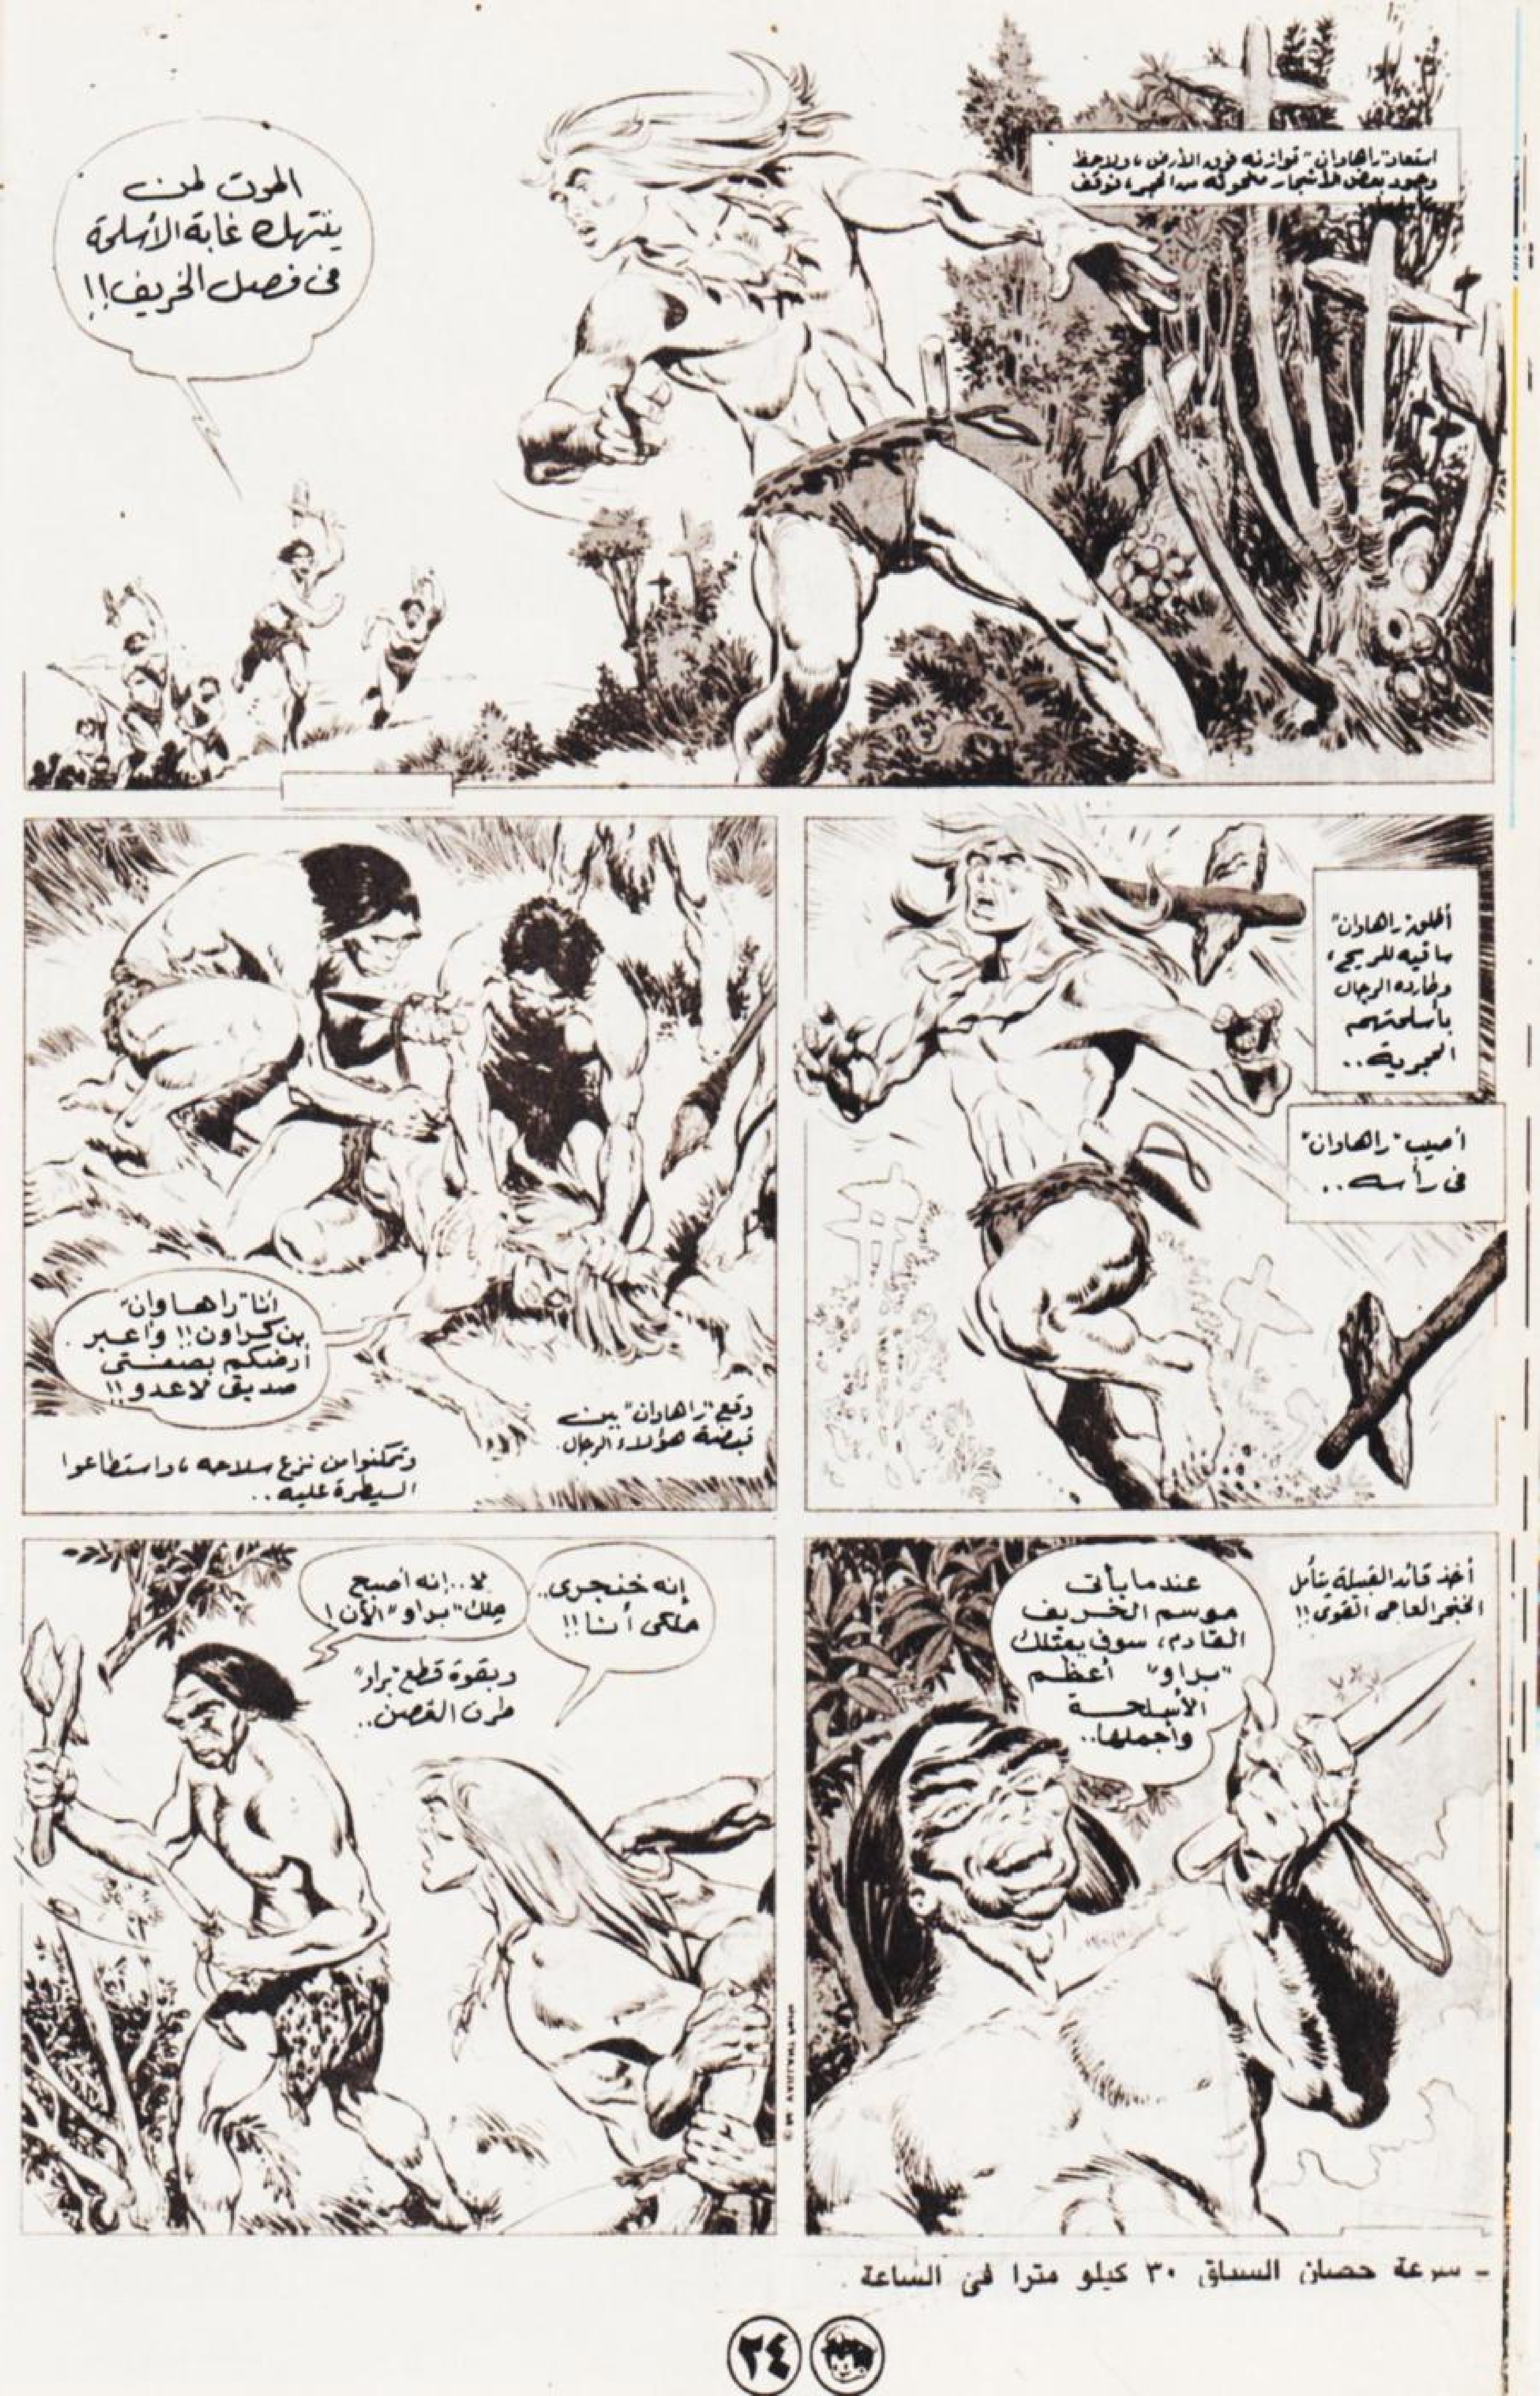 استعاد "راهاوان" توازنه فوق الأرض، ولاحظ
وجود بعض الأشجار من الحجر، فتوقف
الموت لمن
ينتهك غابة الأسلحة
فى فصل الخريف!!
أطلق "راهاوان"
ساقيه للريح،
وطارده الرجال
بأسلحتهم
الحجرية..
أصيب "راهاوان"
فى رأسه..
وقع "راهاوان" بين
قبضة هؤلاء الرجال.
أنا "راهاوان"
بن كراون!! وأعبر
أرضكم بصفتى
صديق لا عدو!!
وتمكنوا من نزع سلاحه، واستطاعوا
السيطرة عليه..
أخذ قائد القبيلة يتأمل
الخنجر العاجى القوى!!
عندما يأتى
موسم الخريف
القادم، سوف يمتلك
"براو" أعظم
الأسلحة
وأجملها..
إنه خنجرى..
ملكى أنا!!
لا.. إنه أصبح
ملك "براو" الآن!
وبقوة قطع "براو"
طرف الغصن..
- سرعة حصان السباق ٣٠ كيلو مترا فى الساعة.
٢٤